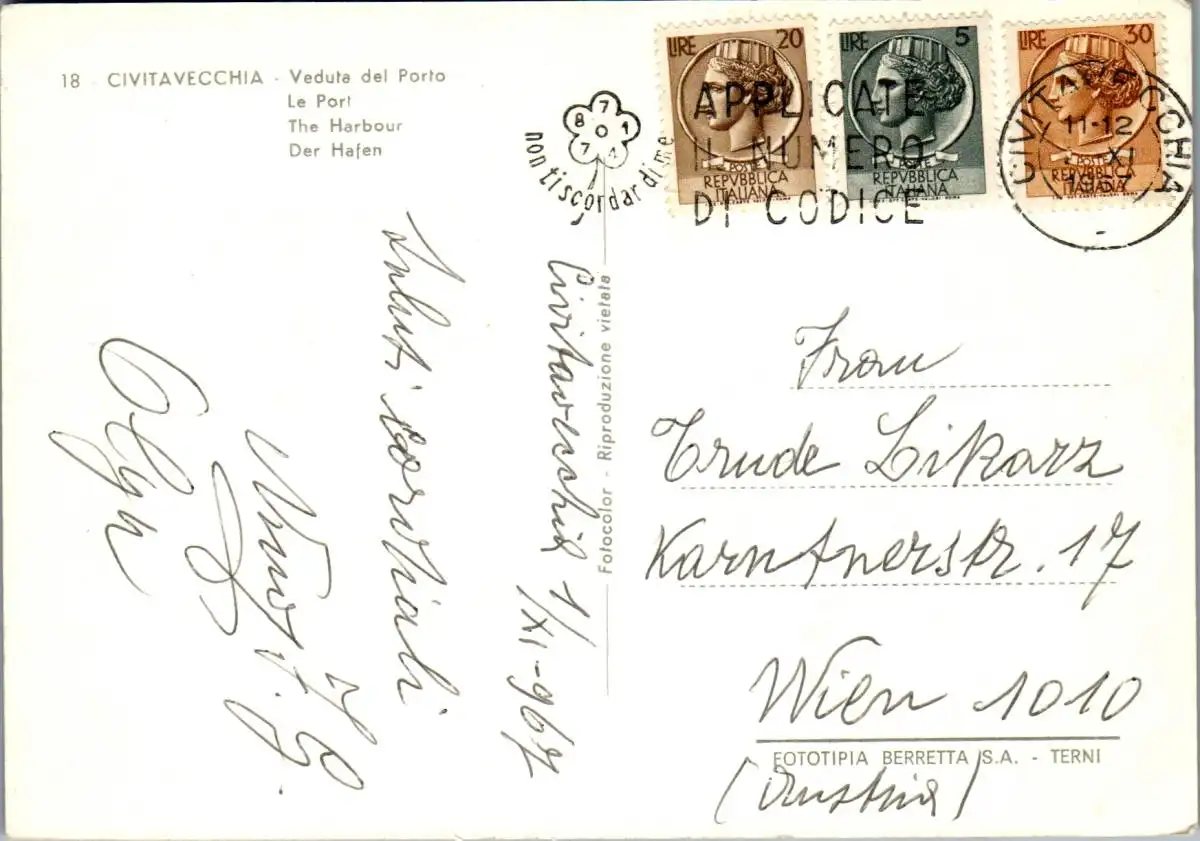 18 - CIVITAVECCHIA - Veduta del Porto
Le Port
The Harbour
Der Hafen
8 7 1 4 7 0
non ti scordar di me
APPLICATE
IL NUMERO
DI CODICE
LIRE 20
POSTE
REPVBBLICA
ITALIANA
LIRE 5
POSTE
REPVBBLICA
ITALIANA
LIRE 30
POSTE
REPVBBLICA
ITALIANA
CIVITAVECCHIA
11-12
XI
Civitavecchia 1/XI-967
Saluti cordiali
Olga
Fotocolor - Riproduzione vietata
Frau
Trude Likarz
Karntnerstr. 17
Wien 1010
FOTOTIPIA BERRETTA S.A. - TERNI
(Austria)